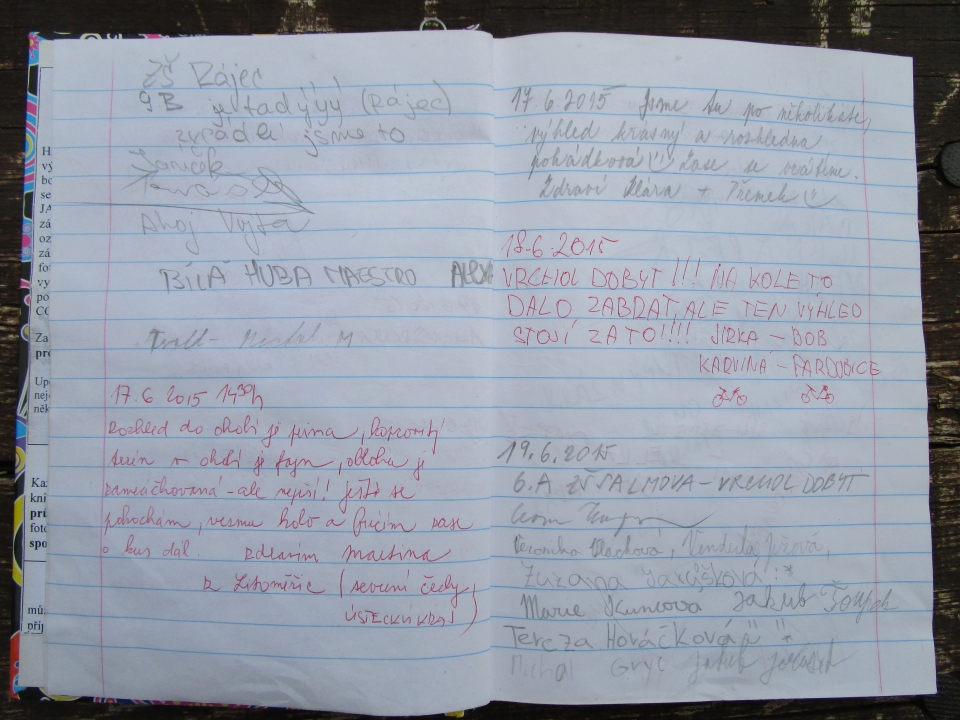 ZŠ Rájec
9B je tadýýý (Rájec)
zvládli jsme to
Janíček
Ahoj Vojta
BÍLÁ HUBA MAESTRO ALEX
17.6 2015 14³⁰h
rozhled do okolí je prima, kopcovitý
terén v okolí je fajn, obloha je
zamračkovaná - ale neprší! ještě se
pokochám, vezmu kolo a frčím zase
o kus dál. zdravím Martina
z Litoměřic (severní čechy
ÚSTECKÝ KRAJ)
17.6.2015 Jsme tu po několikáté,
výhled krásný a rozhledna
pohádková!!! Zase se vrátíme.
Zdraví Klára + Přemek
18.6.2015
VRCHOL DOBYT!!! NA KOLE TO
DALO ZABRAT, ALE TEN VÝHLED
STOJÍ ZA TO!!!! JIRKA - BOB
KARVINÁ - PARDUBICE
19.6.2015
6.A ZŠ SALMOVA - VRCHOL DOBYT
Veronika Vendula
Zuzana Jarůšková :*
Marie Kuncová Jakub
Tereza Horáčková :*
Michal Gryc Jakub
H
vý
bo
se
JA
zá
oz
zá
fo
vy
po
CC
Za
pro
Upo
nej
něk
Kaž
kni
prů
foto
spo
mů
přip